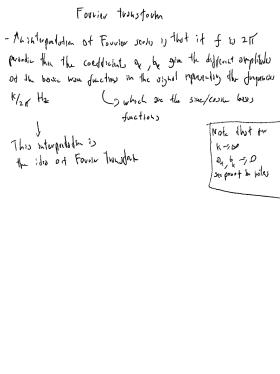 Fourier transform
- An interpretation of Fourier series is that if f is 2π
periodic then the coefficients aₖ, bₖ give the different amplitudes
of the basic wave functions in the signal representing the frequencies
k/2π Hz
which are the sine/cosine basis
functions
This interpretation is
the idea of Fourier transform
Note that for
k→∞
aₖ, bₖ → 0
see proof in notes